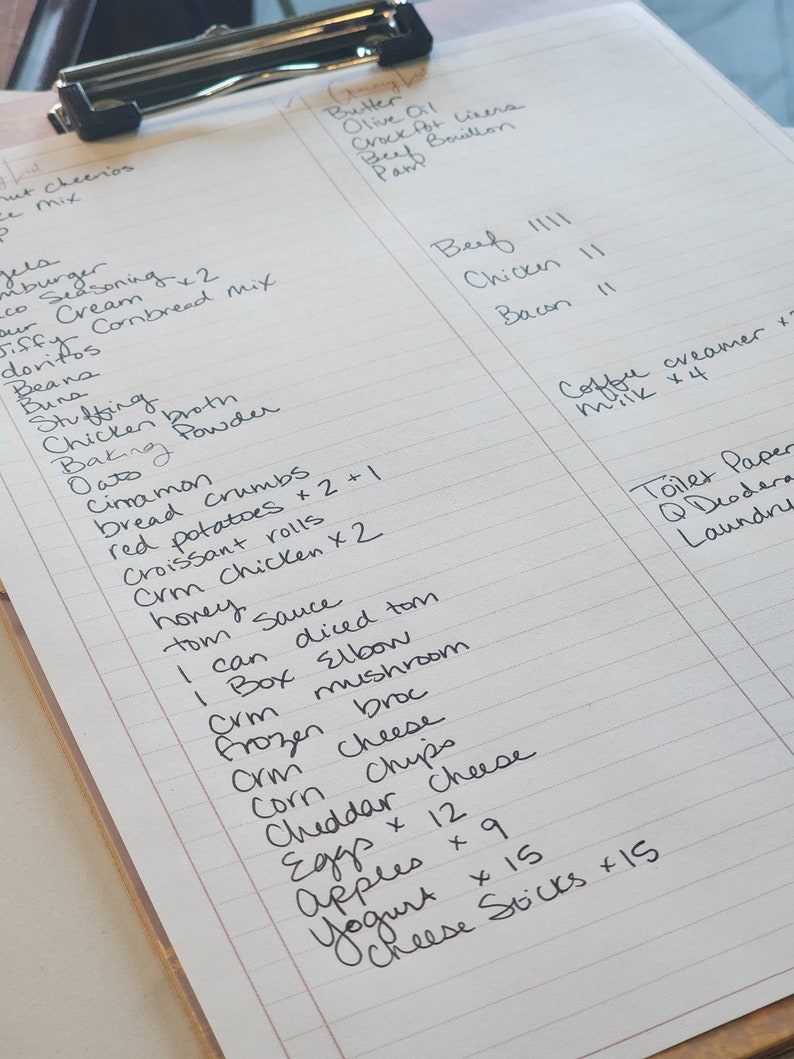 List
nut cheerios
mix
Seasoning
Cream x 2
Jiffy Cornbread mix
doritos
Beans
Buns
Stuffing
Chicken broth
Baking Powder
Oats
cinnamon
bread crumbs
red potatoes x 2 + 1
croissant rolls
crm chicken x 2
honey
tom sauce
1 can diced tom
1 Box Elbow
crm mushroom
frozen broc
crm cheese
corn chips
cheddar cheese
Eggs x 12
apples x 9
Yogurt x 15
cheese Sticks x 15
Grocery List
Butter
Olive Oil
CrockPot Liners
Beef Bouillon
Pam
Beef IIII
Chicken II
Bacon II
Coffee creamer x
milk x 4
Toilet Paper
Q
Laundry